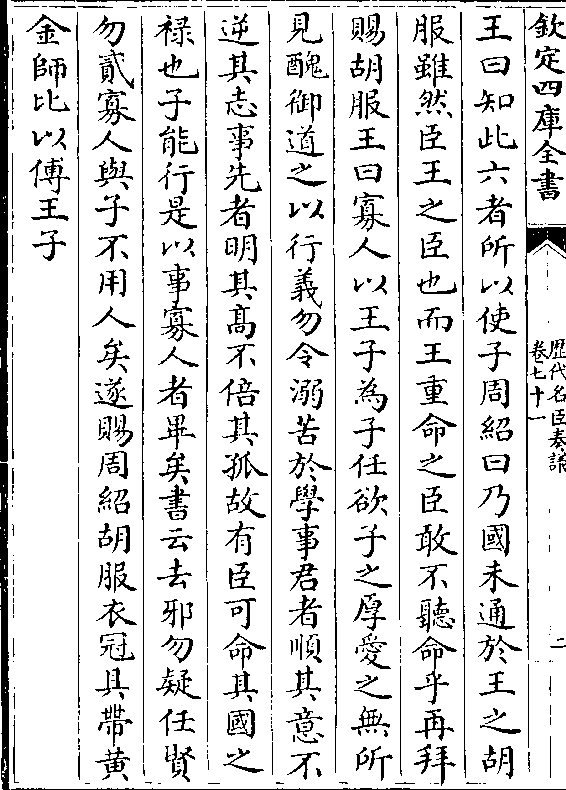 欽定四庫全書
歴代名臣奏議
卷七十一
二
王曰知此六者所以使子周紹曰乃國未通於王之胡
服雖然臣王之臣也而王重命之臣敢不聽命乎再拜
賜胡服王曰寡人以王子為子任欲子之厚愛之無所
見醜御道之以行義勿令溺苦於學事君者順其意不
逆其志事先者明其高不倍其孤故有臣可命其國之
禄也子能行是以事寡人者畢矣書云去邪勿疑任賢
勿貳寡人與子不用人矣遂賜周紹胡服衣冠具帶黄
金師比以傅王子